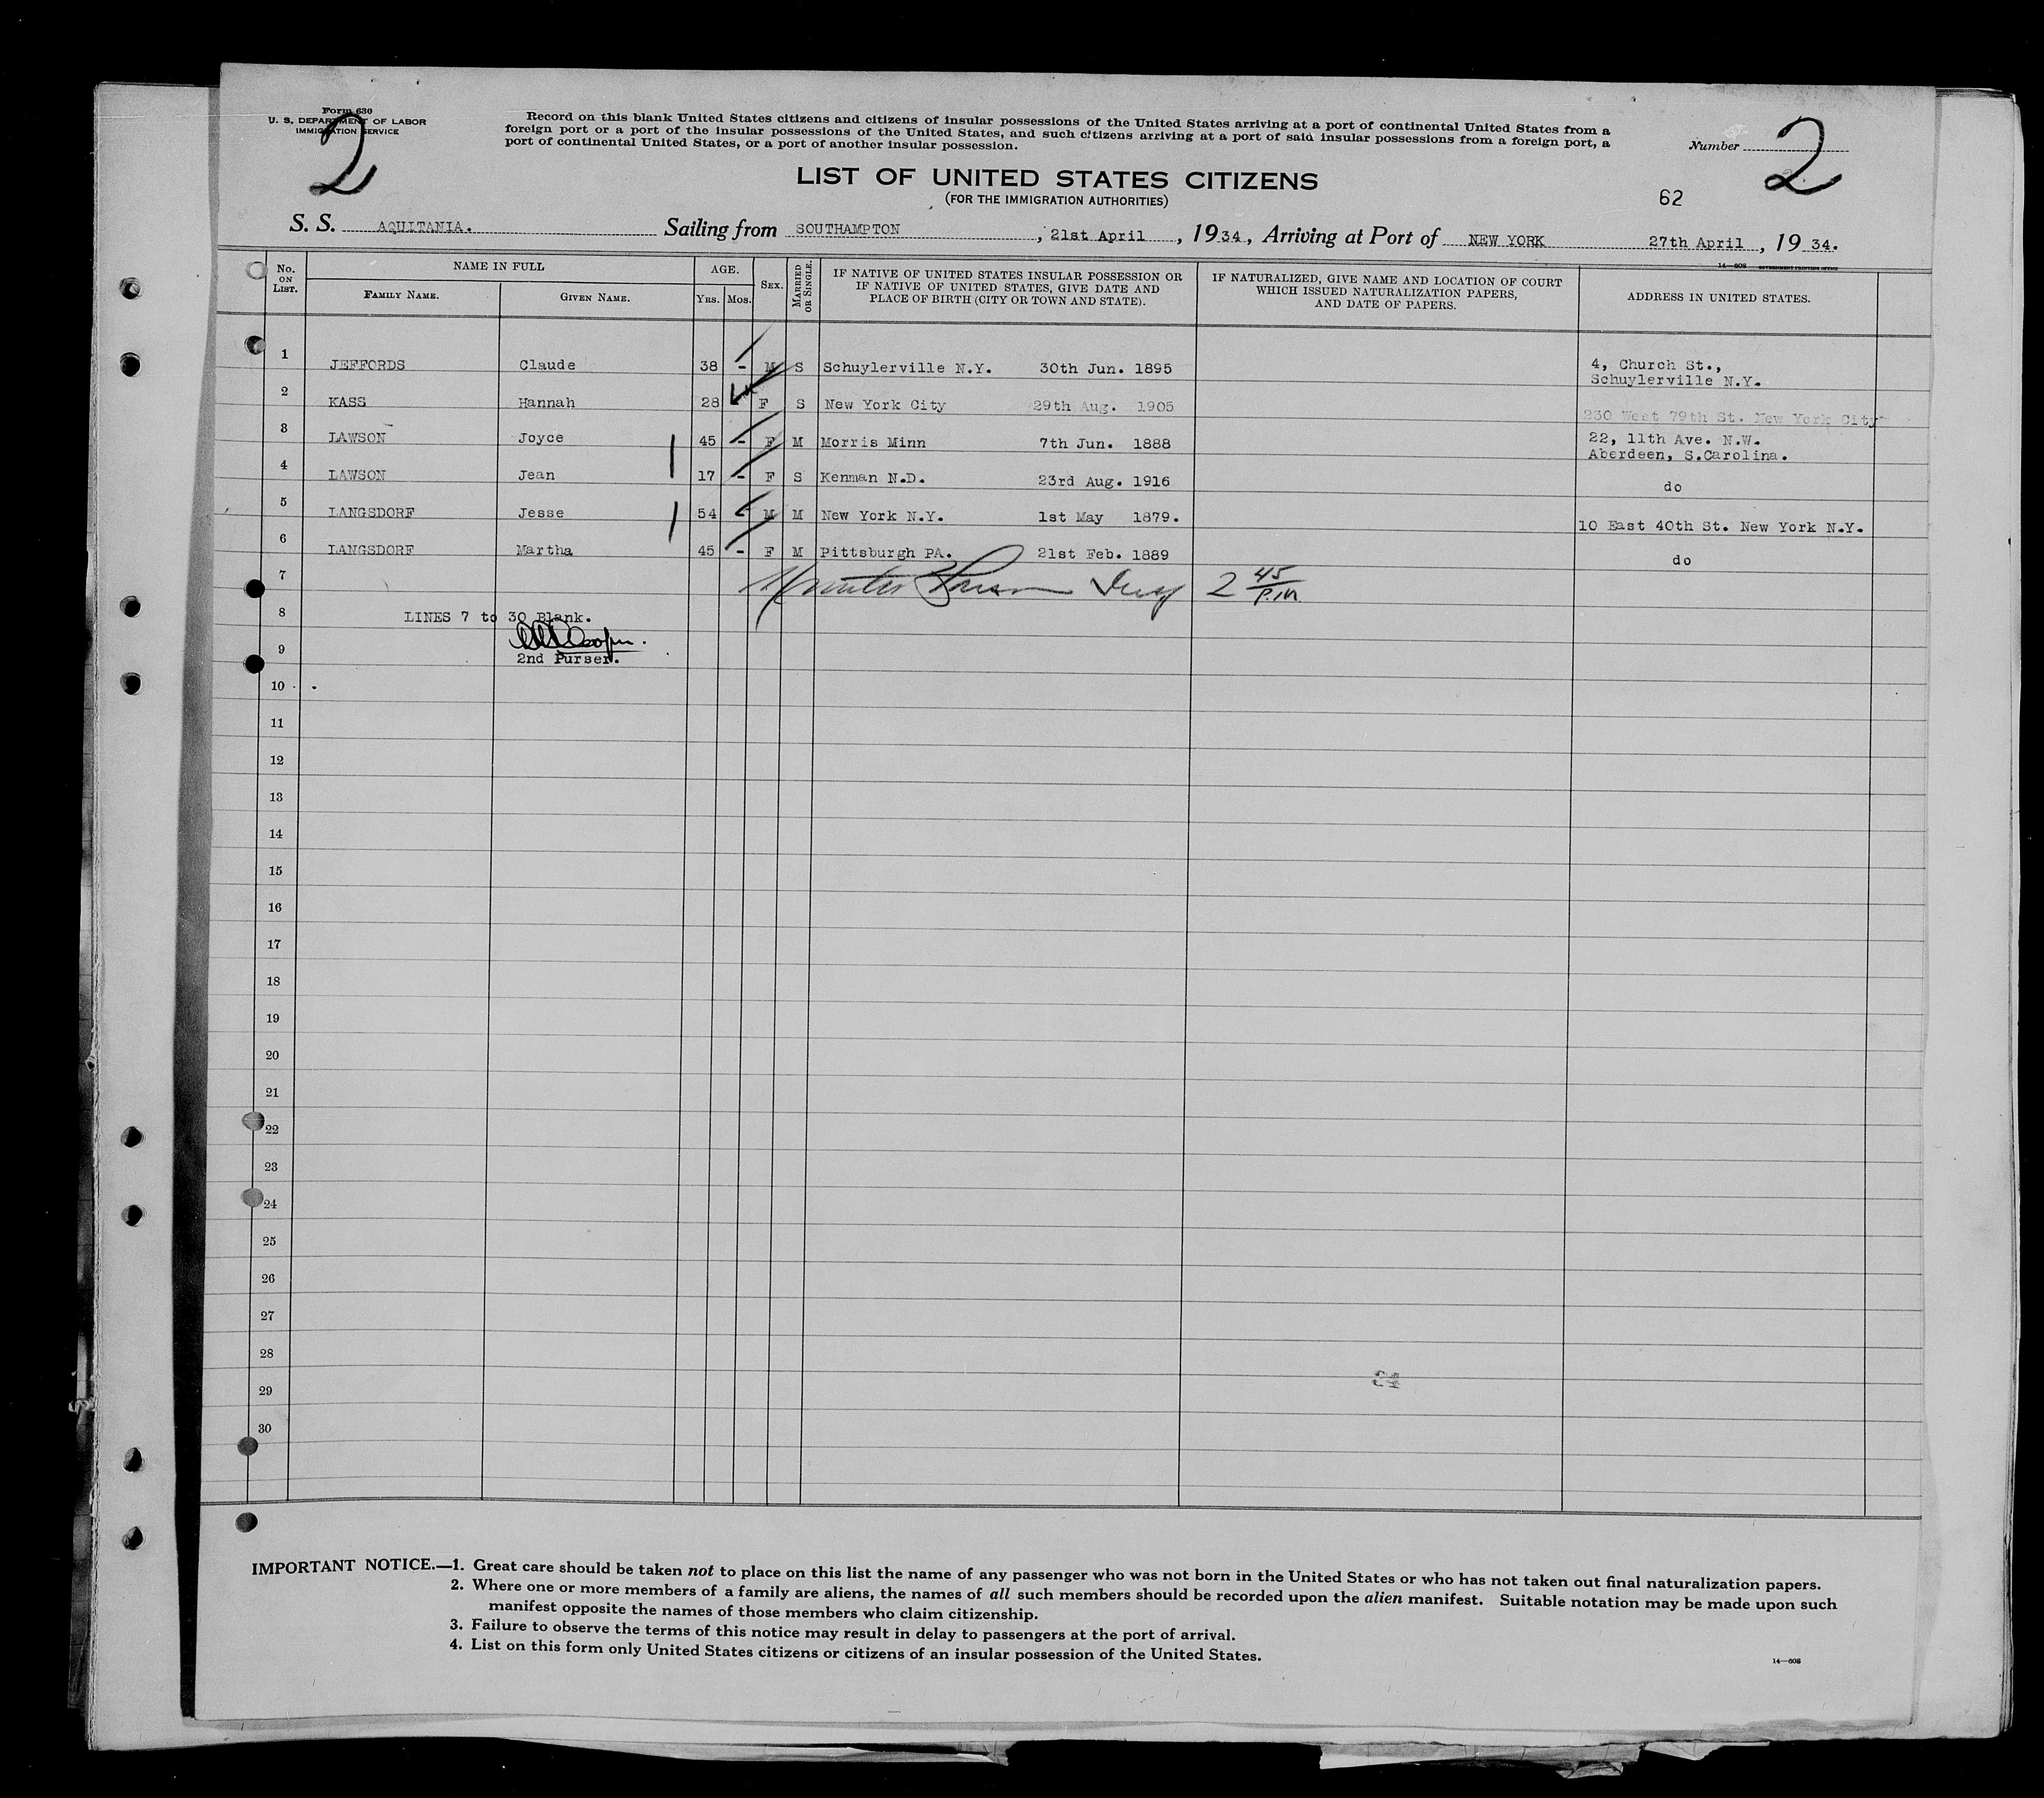 Form 630
U. S. DEPARTMENT OF LABOR
IMMIGRATION SERVICE
2
Record on this blank United States citizens and citizens of insular possessions of the United States arriving at a port of continental United States from a
foreign port or a port of the insular possessions of the United States, and such citizens arriving at a port of said insular possessions from a foreign port, a
port of continental United States, or a port of another insular possession.
Number
2
LIST OF UNITED STATES CITIZENS
(FOR THE IMMIGRATION AUTHORITIES)
62
S. S. AQUITANIA. Sailing from SOUTHAMPTON, 21st April, 1934, Arriving at Port of NEW YORK 27th April, 1934.
14—608 GOVERNMENT PRINTING OFFICE
No. ON LIST. NAME IN FULL AGE. SEX. MARRIED OR SINGLE. IF NATIVE OF UNITED STATES INSULAR POSSESSION OR IF NATIVE OF UNITED STATES, GIVE DATE AND PLACE OF BIRTH (CITY OR TOWN AND STATE). IF NATURALIZED, GIVE NAME AND LOCATION OF COURT WHICH ISSUED NATURALIZATION PAPERS, AND DATE OF PAPERS. ADDRESS IN UNITED STATES.
FAMILY NAME. GIVEN NAME. YRS. MOS.
1 JEFFORDS Claude 38 - M S Schuylerville N.Y. 30th Jun. 1895 4, Church St.,
Schuylerville N.Y.
2 KASS Hannah 28 F S New York City 29th Aug. 1905 230 West 79th St. New York City
3 LAWSON Joyce 45 - F M Morris Minn 7th Jun. 1888 22, 11th Ave. N.W.
Aberdeen, S.Carolina.
4 LAWSON Jean 17 - F S Kenman N.D. 23rd Aug. 1916 do
5 LANGSDORF Jesse 54 - M M New York N.Y. 1st May 1879. 10 East 40th St. New York N.Y.
6 LANGSDORF Martha 45 - F M Pittsburgh PA. 21st Feb. 1889 do
7 2 45 P.M.
8 LINES 7 to 30 Blank.
9 2nd Purser.
10
11
12
13
14
15
16
17
18
19
20
21
22
23
24
25
26
27
28
29
30
IMPORTANT NOTICE.—1. Great care should be taken not to place on this list the name of any passenger who was not born in the United States or who has not taken out final naturalization papers.
2. Where one or more members of a family are aliens, the names of all such members should be recorded upon the alien manifest. Suitable notation may be made upon such
manifest opposite the names of those members who claim citizenship.
3. Failure to observe the terms of this notice may result in delay to passengers at the port of arrival.
4. List on this form only United States citizens or citizens of an insular possession of the United States.
14—608